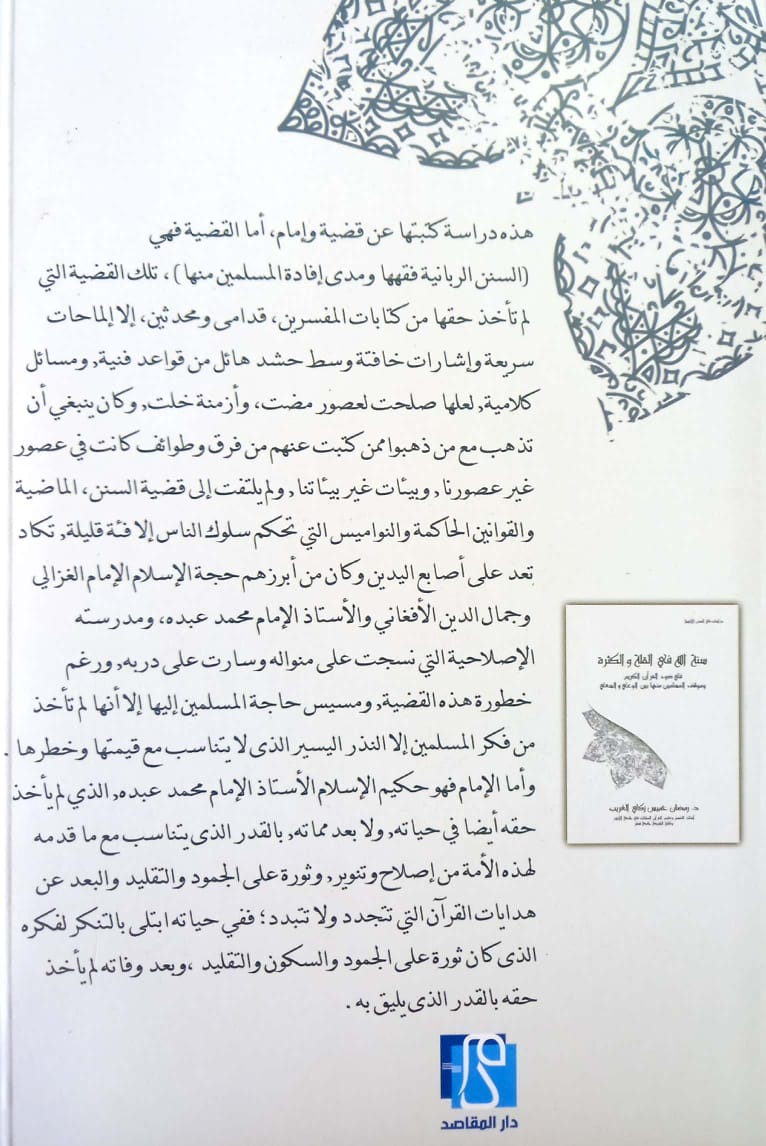 هذه دراسة كتبتها عن قضية وإمام، أما القضية فهي
(السنن الربانية فقهها ومدى إفادة المسلمين منها) ، تلك القضية التي
لم تأخذ حقها من كتابات المفسرين، قدامى ومحدثين، إلا إلماحات
سريعة وإشارات خافتة وسط حشد هائل من قواعد فنية, ومسائل
كلامية, لعلها صلحت لعصور مضت، وأزمنة خلت, وكان ينبغي أن
تذهب مع من ذهبوا ممن كتبت عنهم من فرق وطوائف كانت في عصور
غير عصورنا, وبيئات غير بيئاتنا, ولم يلتفت إلى قضية السنن، الماضية
والقوانين الحاكمة والنواميس التي تحكم سلوك الناس إلا فئة قليلة, تكاد
تعد على أصابع اليدين وكان من أبرزهم حجة الإسلام الإمام الغزالي
وجمال الدين الأفغاني والأستاذ الإمام محمد عبده، ومدرسته
الإصلاحية التي نسجت على منواله وسارت على دربه, ورغم
خطورة هذه القضية, ومسيس حاجة المسلمين إليها إلا أنها لم تأخذ
من فكر المسلمين إلا النذر اليسير الذى لا يتناسب مع قيمتها وخطرها .
وأما الإمام فهو حكيم الإسلام الأستاذ الإمام محمد عبده, الذي لم يأخذ
حقه أيضا في حياته, ولا بعد مماته, بالقدر الذى يتناسب مع ما قدمه
لهذه الأمة من إصلاح وتنوير, وثورة على الجمود والتقليد والبعد عن
هدايات القرآن التي تتجدد ولا تتبدد؛ ففي حياته ابتلى بالتنكر لفكره
الذى كان ثورة على الجمود والسكون والتقليد ،وبعد وفاته لم يأخذ
حقه بالقدر الذى يليق به .
سنة الله في القلة والكثرة
في ضوء القرآن الكريم
وموقف المسلمين منها بين الوعي والسعي
د. رمضان خميس زكي الغريب
دار المقاصد